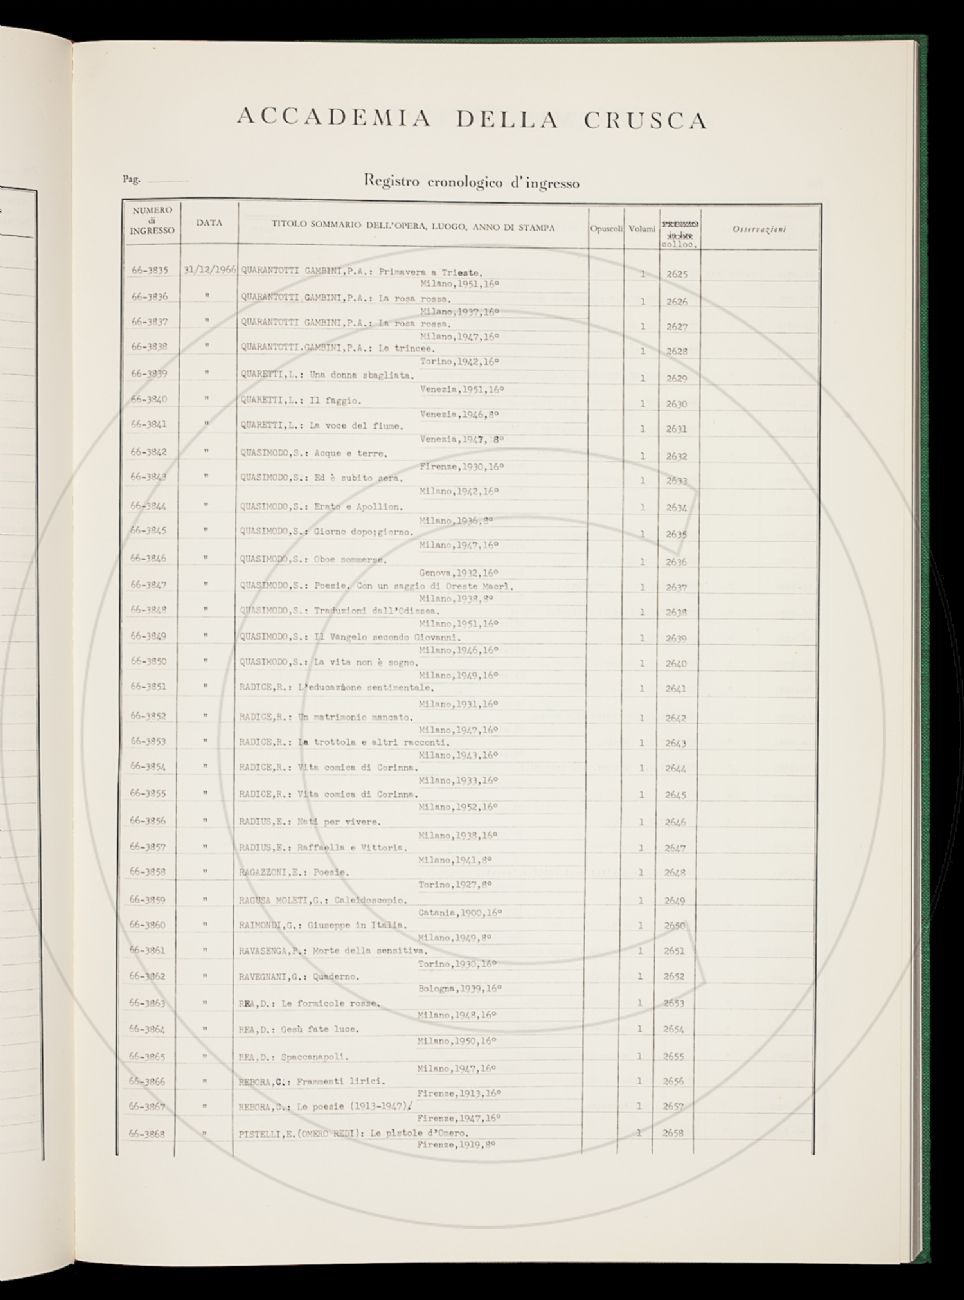 ACCADEMIA DELLA CRUSCA
Pag.
Registro cronologico d'ingresso
NUMERO di INGRESSO DATA TITOLO SOMMARIO DELL'OPERA, LUOGO, ANNO DI STAMPA Opuscoli Volumi colloc. Osservazioni
66-3835 31/12/1966 QUARANTOTTI GAMBINI,P.A.: Primavera a Trieste. 1 2625
Milano,1951,16°
66-3836 " QUARANTOTTI.GAMBINI,P.A.: La rosa rossa. 1 2626
Milano,1937,16°
66-3837 " QUARANTOTTI GAMBINI,P.A.: La rosa rossa. 1 2627
Milano,1947,16°
66-3838 " QUARANTOTTI.GAMBINI,P.A.: Le trincee. 1 2628
Torino,1942,16°
66-3839 " QUARETTI,L.: Una donna sbagliata. 1 2629
Venezia,1951,16°
66-3840 " QUARETTI,L.: Il faggio. 1 2630
Venezia,1946,8°
66-3841 " QUARETTI,L.: La voce del fiume. 1 2631
Venezia,1947, 8°
66-3842 " QUASIMODO,S.: Acque e terre. 1 2632
Firenze,1930,16°
66-3843 " QUASIMODO,S.: Ed è subito sera. 1 2633
Milano,1942,16°
66-3844 " QUASIMODO,S.: Erato e Apollion. 1 2634
Milano,1936,8°
66-3845 " QUASIMODO,S.: Giorno dopo;giorno. 1 2635
Milano,1947,16°
66-3846 " QUASIMODO,S.: Oboe sommerso. 1 2636
Genova,1932,16°
66-3847 " QUASIMODO,S.: Poesie. Con un saggio di Oreste Macrì. 1 2637
Milano,1938,8°
66-3848 " QUASIMODO,S.: Traduzioni dall'Odissea. 1 2638
Milano,1951,16°
66-3849 " QUASIMODO,S.: Il Vangelo secondo Giovanni. 1 2639
Milano,1946,16°
66-3850 " QUASIMODO,S.: La vita non è sogno. 1 2640
Milano,1949,16°
66-3851 " RADICE,R.: L'educazione sentimentale. 1 2641
Milano,1931,16°
66-3852 " RADICE,R.: Un matrimonio mancato. 1 2642
Milano,1947,16°
66-3853 " RADICE,R.: La trottola e altri racconti. 1 2643
Milano,1943,16°
66-3854 " RADICE,R.: Vita comica di Corinna. 1 2644
Milano,1933,16°
66-3855 " RADICE,R.: Vita comica di Corinna. 1 2645
Milano,1952,16°
66-3856 " RADIUS,E.: Nati per vivere. 1 2646
Milano,1938,16°
66-3857 " RADIUS,E.: Raffaella e Vittoria. 1 2647
Milano,1941,8°
66-3858 " RAGAZZONI,E.: Poesie. 1 2648
Torino,1927,8°
66-3859 " RAGUSA MOLETI,G.: Caleidoscopio. 1 2649
Catania,1900,16°
66-3860 " RAIMONDI,G.: Giuseppe in Italia. 1 2650
Milano,1949,8°
66-3861 " RAVASENGA,P.: Morte della sensitiva. 1 2651
Torino,1930,16°
66-3862 " RAVEGNANI,G.: Quaderno. 1 2652
Bologna,1939,16°
66-3863 " REA,D.: Le formicole rosse. 1 2653
Milano,1948,16°
66-3864 " REA,D.: Gesù fate luce. 1 2654
Milano,1950,16°
66-3865 " REA,D.: Spaccanapoli. 1 2655
Milano,1947,16°
66-3866 " REBORA,C.: Frammenti lirici. 1 2656
Firenze,1913,16°
66-3867 " REBORA,C.: Le poesie (1913-1947)/ 1 2657
Firenze,1947,16°
66-3868 " PISTELLI,E.(OMERO REDI): Le pistole d'Omero. 1 2658
Firenze,1919,8°